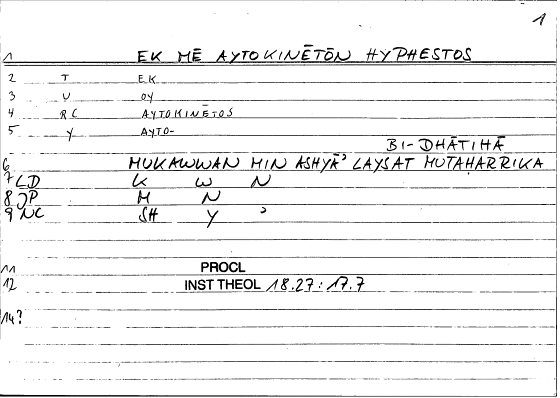 1
1 EK MĒ AYTOKINĒTŌN HYPHESTOS
2 T EK
3 U OY
4 RC AYTOKINĒTOS
5 Y AYTO-
BI-DHĀTIHĀ
6 MUKAWWAN MIN ASHYĀ' LAYSAT MUTAHARRIKA
7 LD K W N
8 JP M N
9 NC SH Y '
11 PROCL
12 INST THEOL 18.27:17.7
14?